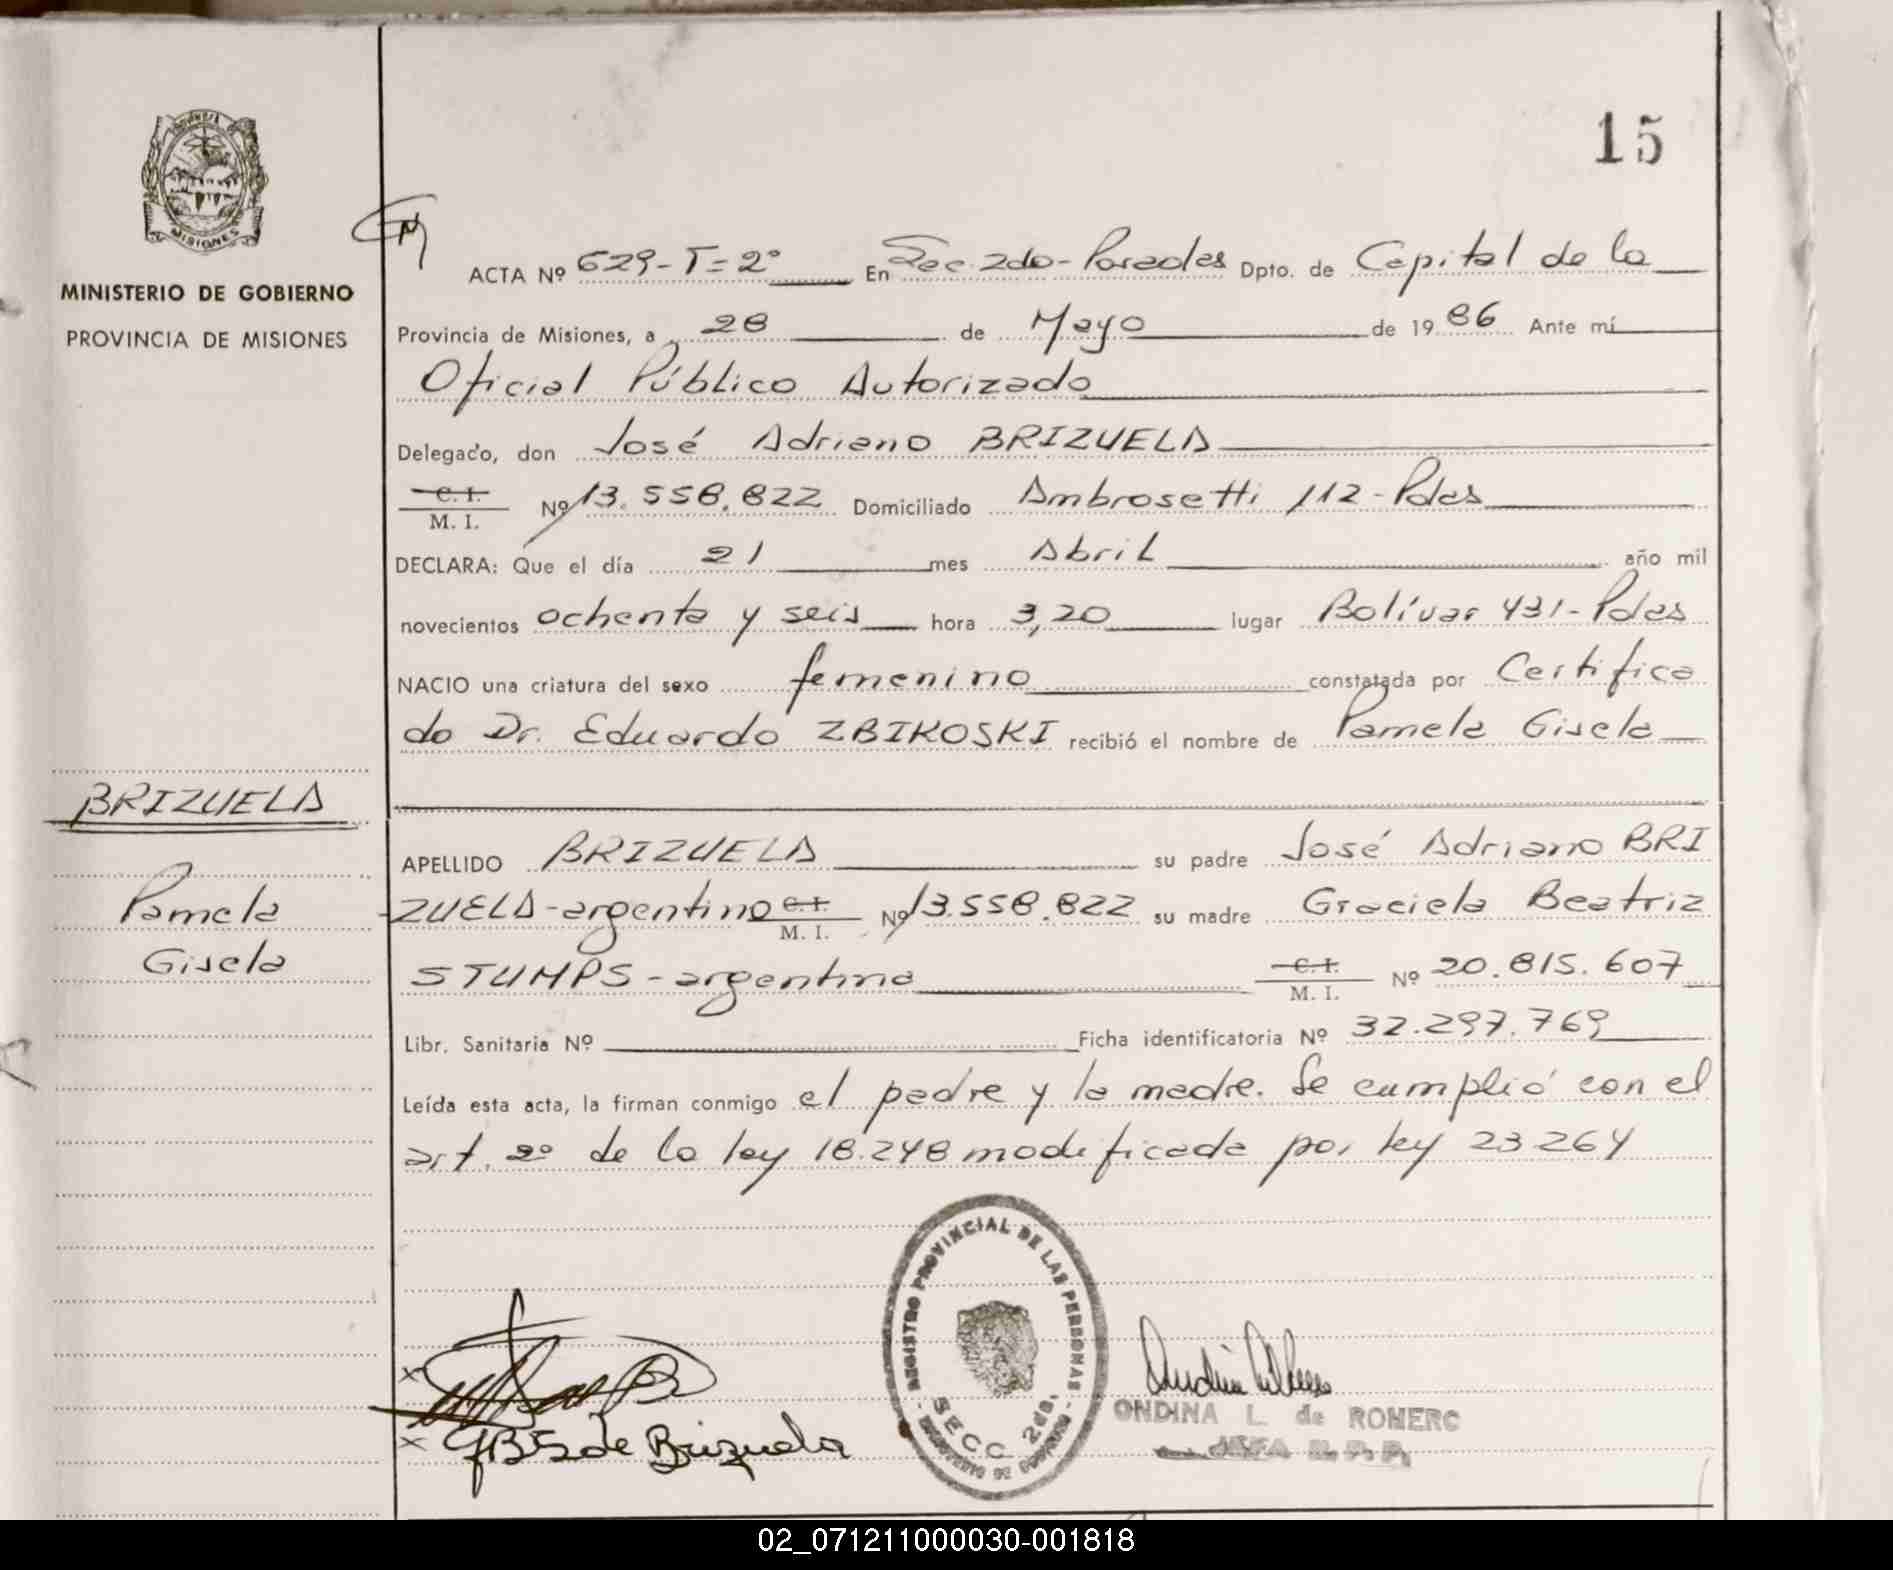 15
PROVINCIA
MISIONES
MINISTERIO DE GOBIERNO
PROVINCIA DE MISIONES
ACTA Nº 629-T=2º En Sec. 2da-Posadas Dpto. de Capital de la
Provincia de Misiones, a 28 de Mayo de 1986 Ante mí
Oficial Público Autorizado
Delegado, don José Adriano BRIZUELA
C. I.
M. I. Nº 13.558.822 Domiciliado Ambrosetti 112-Pdas
DECLARA: Que el día 21 mes Abril año mil
novecientos ochenta y seis hora 3,20 lugar Bolívar 431-Pdas
NACIO una criatura del sexo femenino constatada por Certifica
do Dr. Eduardo ZBIKOSKI recibió el nombre de Pamela Gisela
BRIZUELA
Pamela
Gisela
APELLIDO BRIZUELA su padre José Adriano BRI
ZUELA-argentino C. I. M. I. Nº 13.558.822 su madre Graciela Beatriz
STUMPS-argentina C. I. M. I. Nº 20.815.607
Libr. Sanitaria Nº Ficha identificatoria Nº 32.297.769
Leída esta acta, la firman conmigo el padre y la madre. Se cumplió con el
art. 2º de la ley 18.248 modificada por ley 23264
REGISTRO PROVINCIAL DE LAS PERSONAS
SECC 2da.
GBS de Brizuela
ONDINA L. de ROMERO
JEFA R. P. P.
02_071211000030-001818